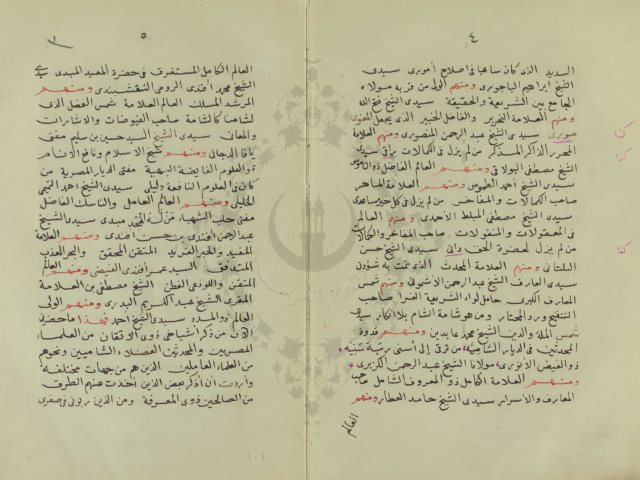 ٤
السديد الذى كان ساعيا فى اصلاح أمورى سيدى
الشيخ ابراهيم الباجورى ومنهم الولى من قربه مولاه
الجامع بين الشريعة والحقيقة سيدى الشيخ فتح الله
ومنهم العلامة النحرير والفاضل الخبير الذى
صورى سيدى الشيخ عبد الرحمن المنصورى ومنهم العلامة
المحرر الذاكر المذكر من لم يزل فى الكمالات يراقى سيدى
الشيخ مصطفى البولاقى ومنهم العالم الفاضل ذو
سيدى الشيخ احمد ومنهم العلامة الماهر
صاحب الكمالات والمفاخر من لم يزل فى كل خير
الشيخ مصطفى المبلط الاحمدى ومنهم العالم
فى المعقولات والمنقولات صاحب المفاخر والكمالات
من لم يزل لحضرة الحق دانى سيدى الشيخ حسن
البلتانى ومنهم العلامة المحدث الذى تمت به شؤون
سيدى العارف الشيخ عبد الرحمن الاشمونى ومنهم شمس
المعارف الكبرى حامل لواء الشريعة الغرا صاحب
التنقيح ورد المحتار ومن هو شامة الشام بلا انكار سيدى
شمس الملة والدين الشيخ محمد عابدين ومنهم قدوة
المحدثين فى الديار الشامية من ترقى إلى أسنى رتبة سنية
ذو الفيض الانورى مولانا الشيخ عبد الرحمن الكزبرى
ومنهم العلامة الكامل ذو المعروف الشامل صاحب
المعارف والاسرار سيدى الشيخ حامد العطار ومنهم
العالم
كذا
كذا
كذا
٥
العالم الكامل المستغرق فى حضرة المعيد المبدى سيدى
الشيخ محمد أفندى الرومى النقشبندى ومنهم
المرشد المسلك العالم العلامة شمس الفضل الذى
لشامنا كالشامة صاحب الفيوضات والاشارات
والمعانى سيدى الشيخ السيد حسين بن سليم مفتى
يافا الدجانى ومنهم شيخ الاسلام ونافع الانام
ذو العلوم الفايضة البهية مفتى الديار المصرية من
كان فى العلوم النافعة دليلى سيدى الشيخ احمد التميمى
الخليلى ومنهم العالم العامل والناسك الفاضل
مفتى حلب الشهباء من له المجد مبدى سيدى الشيخ
عبد الرحمن افندى بن حسن أفندى ومنهم العلامة
المفيد والحبر الفريد المتقن المحقق والبحر العذب
المتدفق السيد عمر افندى الغيضى ومنهم العالم
المتقن واللوذعى الفطن الشيخ مصطفى بن العلامة
المقرى الشيخ عبد الكريم البدرى ومنهم الولى
العالم ذو المدد سيدى الشيخ احمد فهذا ما حضرنى
الآن من ذكر أشياخى ذوى الاتقان من العلماء
المصريين والمحدثين الفضلاء الشاميين ونحوهم
من العلماء العاملين الذين هم من جهات مختلفة
وأردت أن أذكر بعض الذين أخذت عنهم الطرق
من الصالحين ذوى المعرفة ومن الذين ربونى فى صغرى